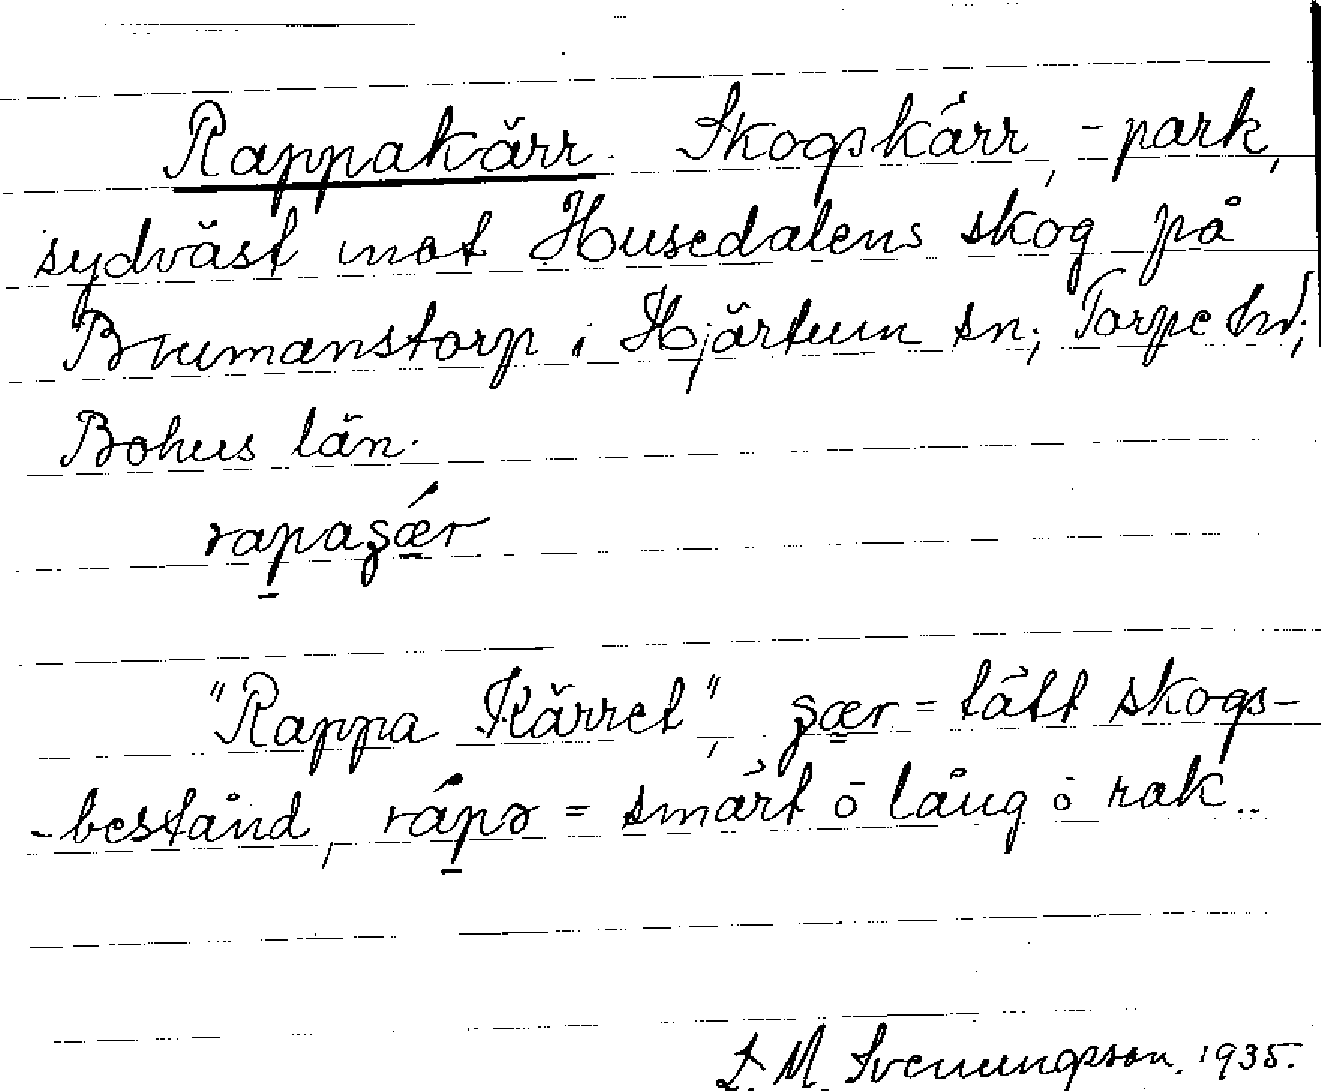 Rappakärr. Skogskärr, -park,
sydväst mot Husedalens skog på
Brumanstorp i Hjärtum sn; Torpe hd;
Bohus län.
rapaʒǽr
"Rappa Kärret", ʒær = tätt skogs-
-bestånd, rápə = smärt ö lång ö rak..
L. M. Svenungsson. 1935.